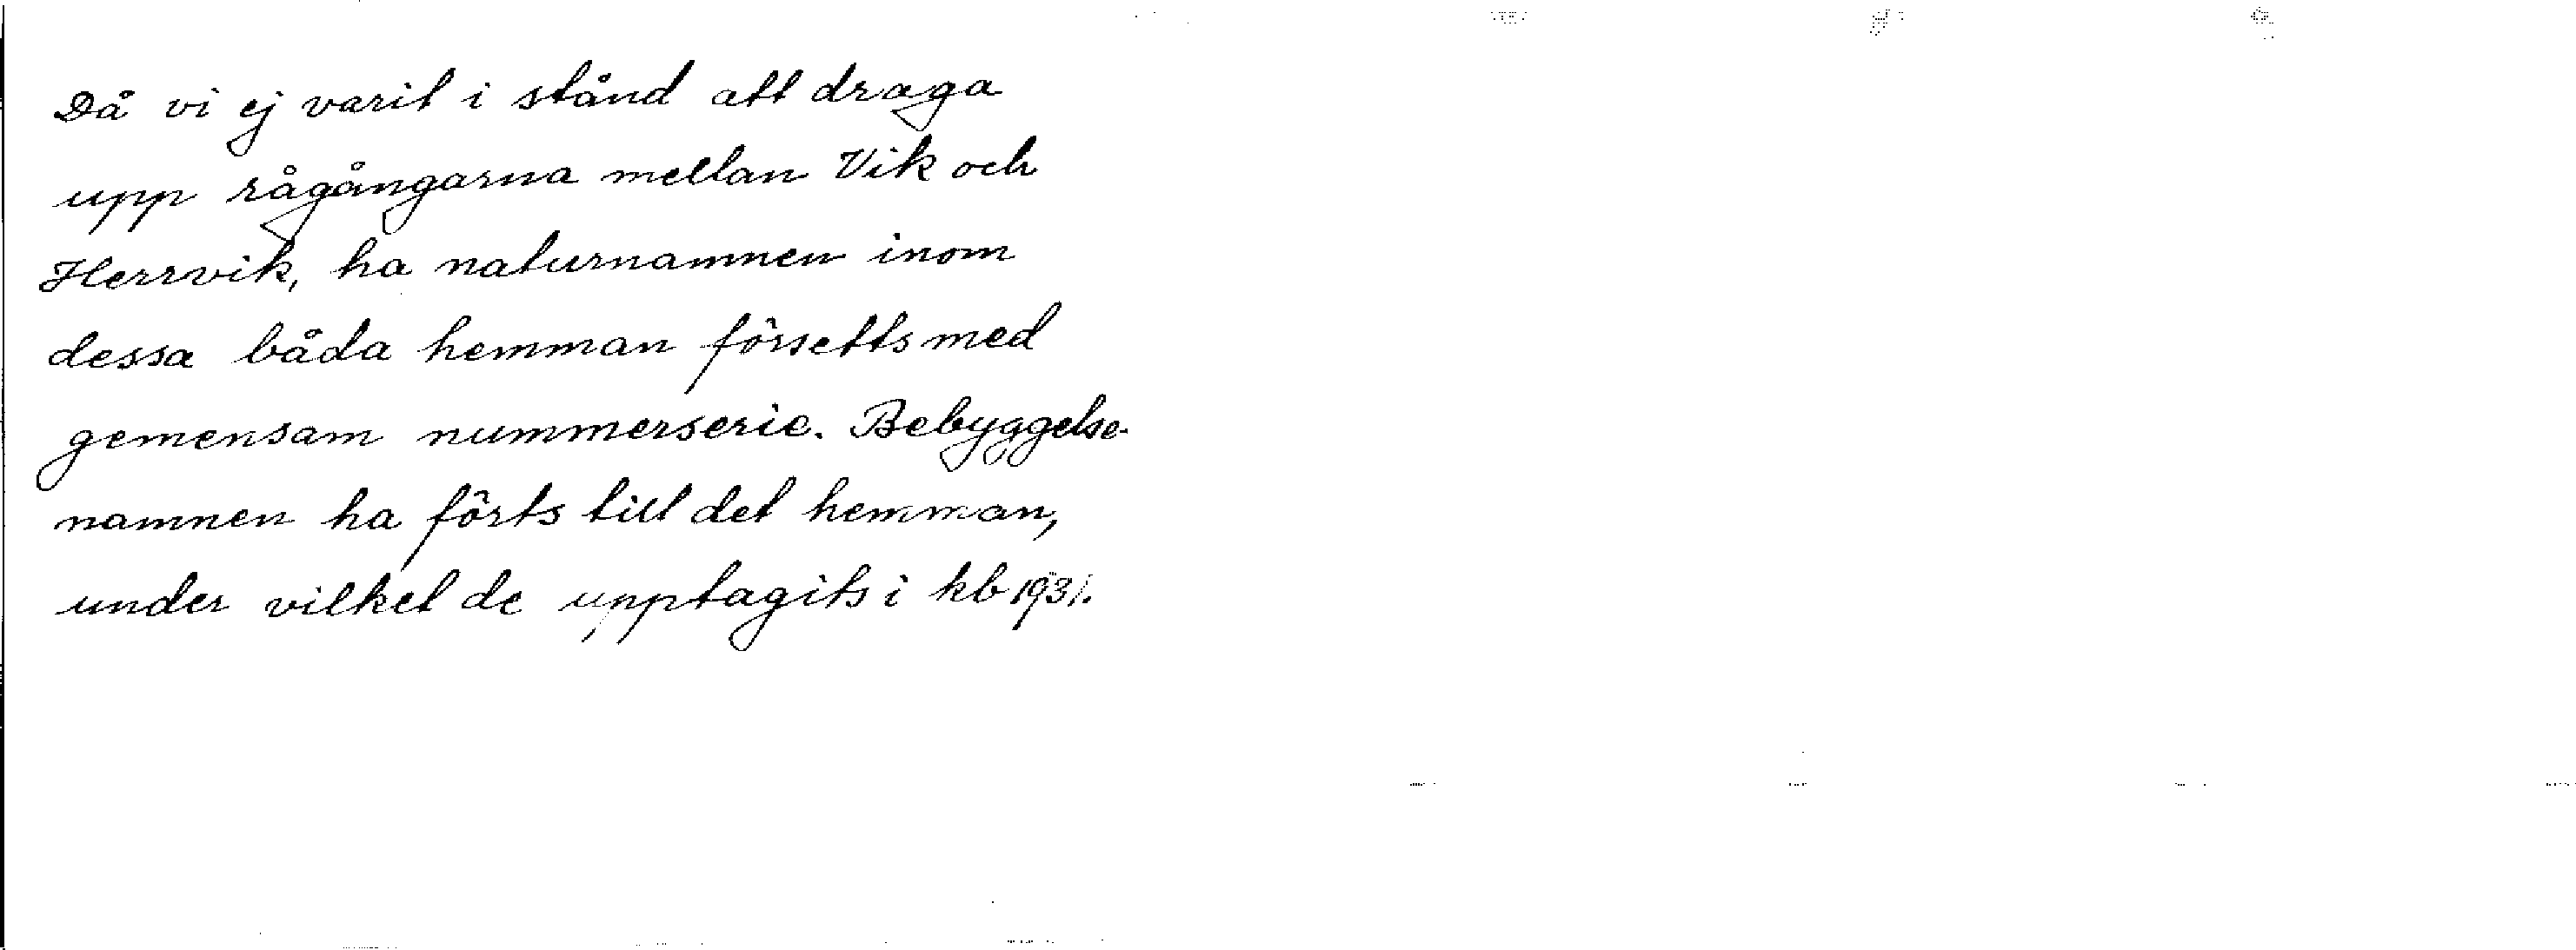 Då vi ej varit i stånd att draga
upp rågångarna mellan Vik och
Herrvik, ha naturnamnen inom
dessa båda hemman försetts med
gemensam nummerserie. Bebyggelse-
namnen ha förts till det hemman,
under vilket de upptagits i kb 1931.